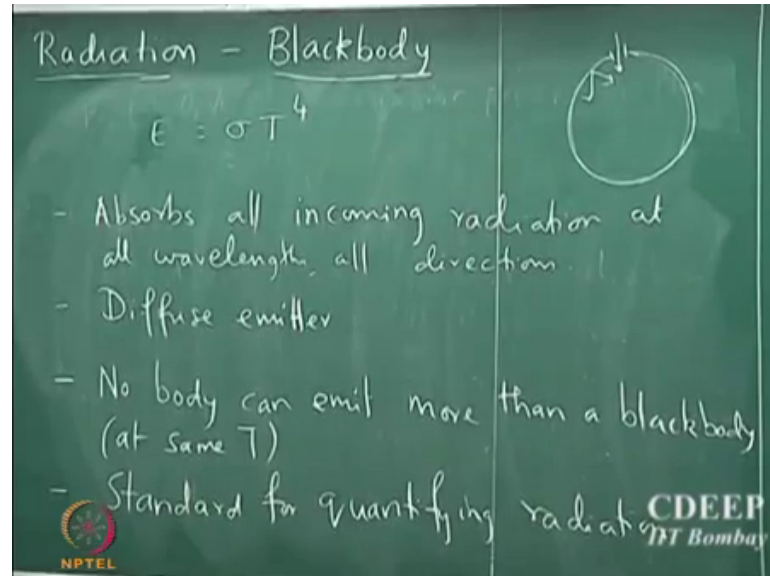 Radiation - Blackbody
E = σT⁴
- Absorbs all incoming radiation at
all wavelength, all direction.
- Diffuse emitter
- No body can emit more than a blackbody
(at same T)
- Standard for quantifying radiation
NPTEL
CDEEP
IIT Bombay